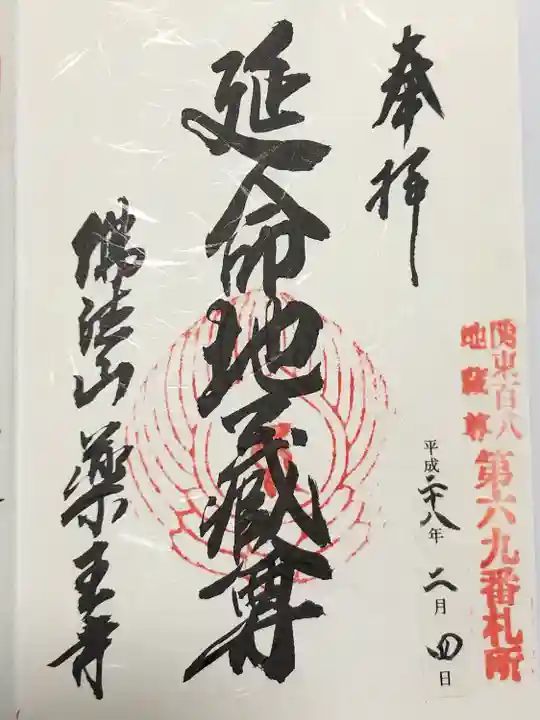 関東百八
地蔵尊
第六九番札所
奉拝
平成二十八年二月四日
延命地蔵尊
佛法山薬王寺